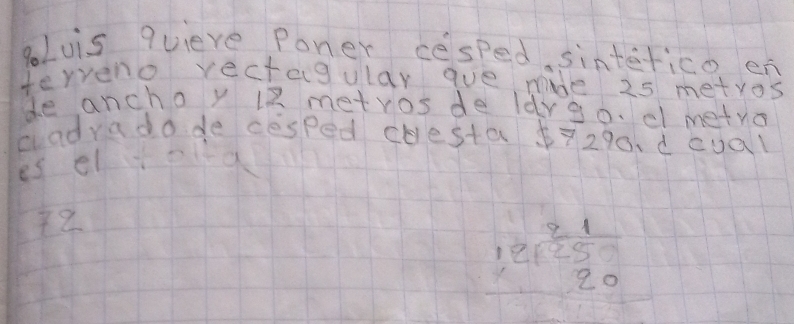 Luis quiere Poner césped sintético en
terreno rectagular que mide 25 metros
de ancho y 12 metros de largo. el metro
cuadrado de césped cuesta $7290. d cual
es el
72
21
12 250
20